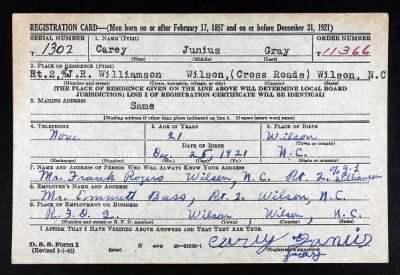 REGISTRATION CARD—(Men born on or after February 17, 1897 and on or before December 31, 1921)
SERIAL NUMBER 1. NAME (Print) ORDER NUMBER
T 1302 Carey Junius Gray T 11366
2. PLACE OF RESIDENCE (Print)
Rt.2,% J.R. Williamson Wilson,(Cross Roads) Wilson, N.C
(Town, township, village, or city) (County) (State)
[THE PLACE OF RESIDENCE GIVEN ON THE LINE ABOVE WILL DETERMINE LOCAL BOARD
JURISDICTION; LINE 2 OF REGISTRATION CERTIFICATE WILL BE IDENTICAL]
3. MAILING ADDRESS
Same
[Mailing address if other than place indicated on line 2. If same insert word same]
4. TELEPHONE 5. AGE IN YEARS 6. PLACE OF BIRTH
None 21 Wilson
DATE OF BIRTH
Dec 25 1921 N.C.
(Exchange) (Number) (Mo.) (Day) (Yr.) (State or country)
7. NAME AND ADDRESS OF PERSON WHO WILL ALWAYS KNOW YOUR ADDRESS
Mr. Frank Rogers Wilson, N.C. Rt. 2. % J.R. Williamson
8. EMPLOYER'S NAME AND ADDRESS
Mr. Emmett Bass, Rt. 2. Wilson, N.C.
9. PLACE OF EMPLOYMENT OR BUSINESS
R.F.D. 2. Wilson, Wilson, N.C.
(Number and street or R. F. D. number) (Town) (County) (State)
I AFFIRM THAT I HAVE VERIFIED ABOVE ANSWERS AND THAT THEY ARE TRUE.
D. S. S. Form 1
(Revised 1-1-42)
Carey Junius
Gray
(Registrant's signature)